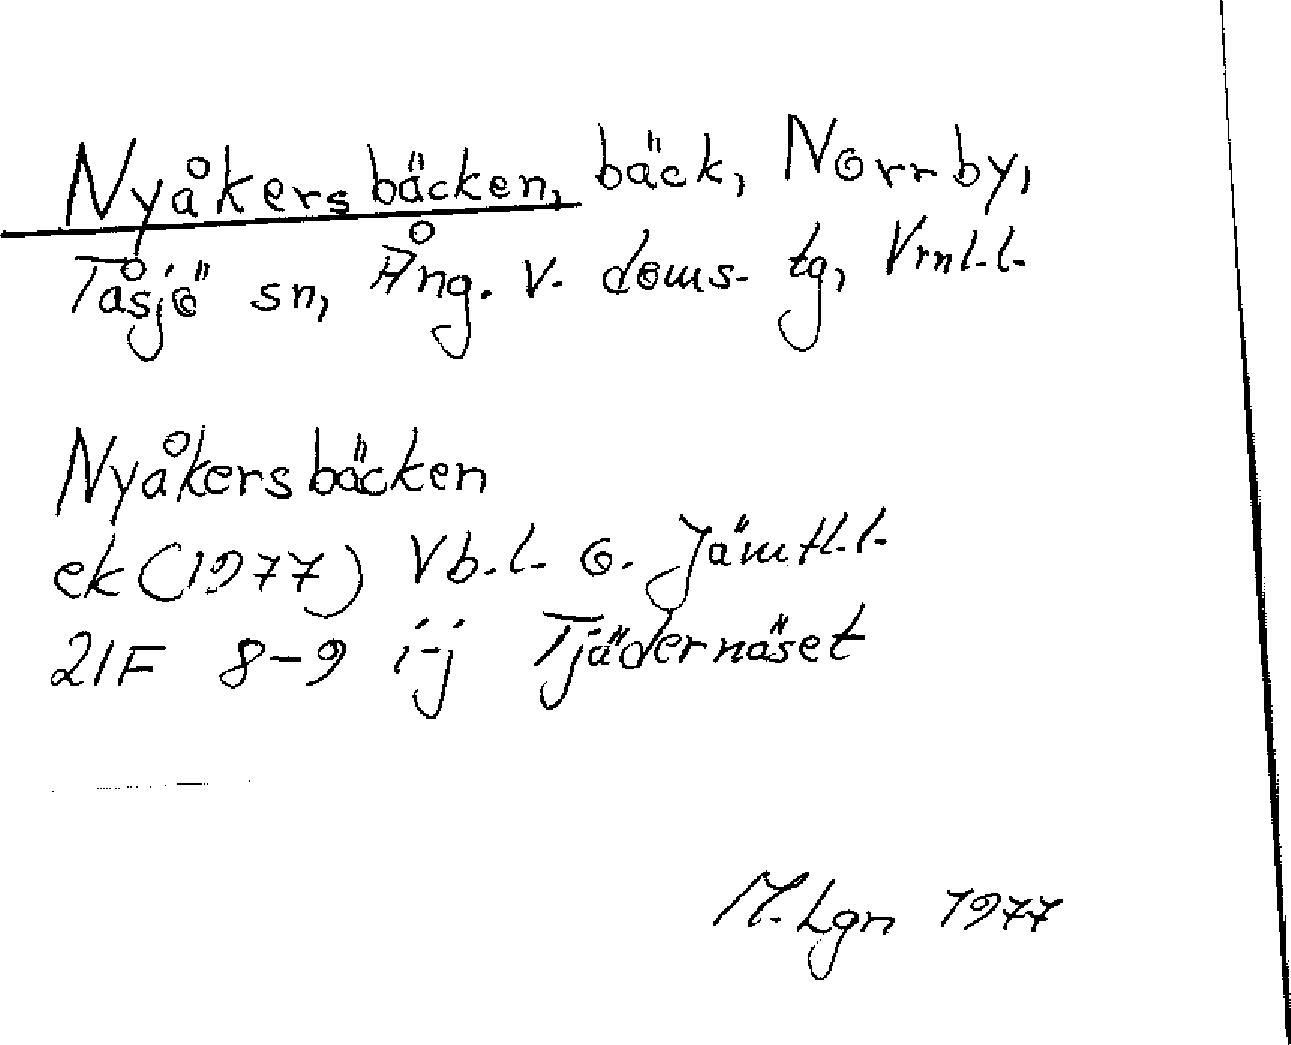 Nyåkersbäcken, bäck, Norrby,
Tåsjö sn, Ång. v. doms. tg, Vrnl.l.
Nyåkersbäcken
ek (1977) Vb.l. o. Jämtl.l.
21F 8-9 i-j Tjädernäset
M.Lgn 1977